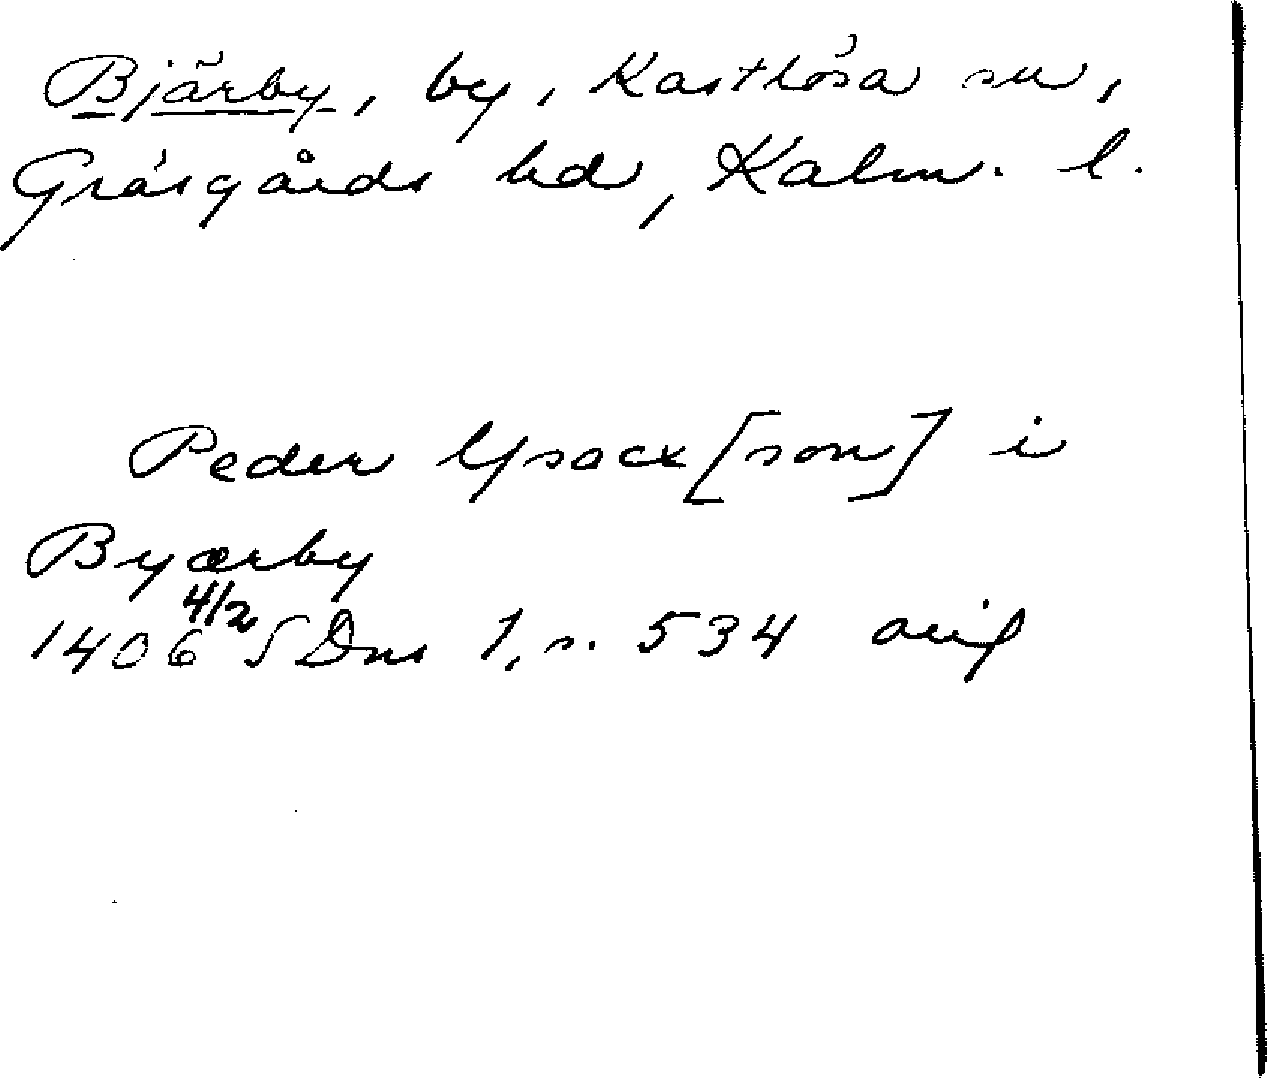 Bjärby, by, Kastlösa sn,
Gräsgårds hd, Kalm. l.
Peder Ysacx [son] i
Byærby
1406 4/2 SDns 1, s. 534 orig